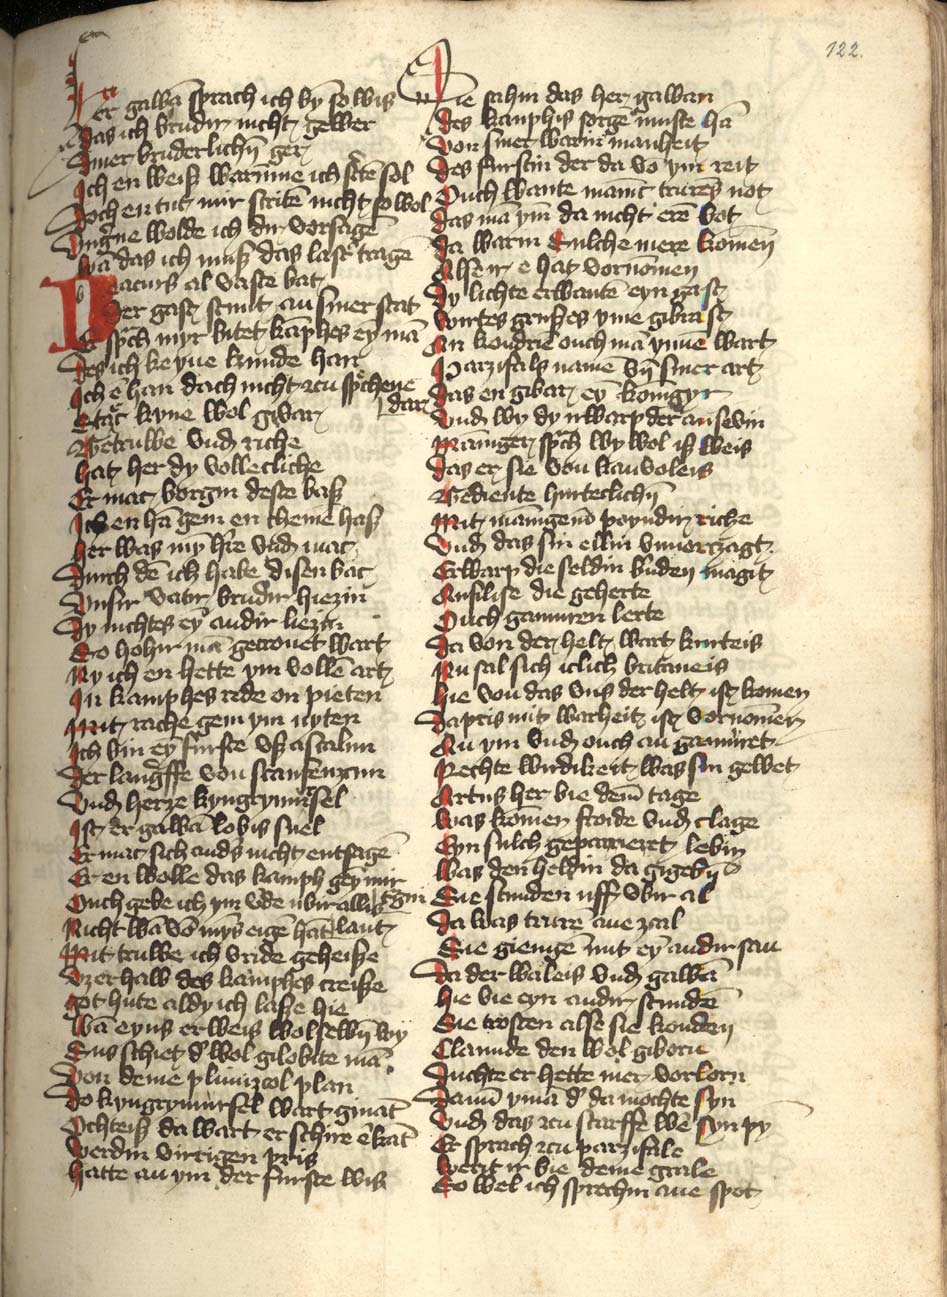 122.
Er gawā sprach ich by so wis
das ich brudir nicht gewer
Diner bruderlichyn ger
Ich en weiß warūme ich stē sol
Doch en tut mir striten nicht so wol
Vngˢne wolde ich dir vorsagē
Wā das ich muß das lastˢ trage
Beacurß al vaste bat
Der gast stunt an siner stat
Er spch myr bitet kāphes ey mā
Des ich keyne kunde han
Ich ē han dach nicht zcu sprchene dar
Starc kune wol givar
Getruwe vnd riche
hat her dy volleccliche
Er mac borgin deste baß
Ich en hā gein en cheine haß
Her was myn hre vnd mac
Durch dē ich habe disen bac
Vnsir vatir brudir hiezin
Dy nichtes ey andir liezin
So hohir mā gecronet wart
Ny ich en hette ym vollē art
In kamphes rede on pieten
Mit rache gein ym nyten
Ich bin ey furste vß ascalun
Der langffe von scanfenzcun
Vnd herze kyngrymursel
Ist er gawā lobis snel
Er mac sich andˢs nicht entsagē
Er en wolle das kamph gey mir tragin
Ouch gebe ich ym vˢde vbir allis lant
Nicht wā vō myns eige hāt
Mit truwe ich vride geheiße
Vzerhalb des kamphes creiße
got hute aldy ich laße hie
Wā eyns er weis wol sewyn wy
Sus schiet dˢ wol gilobite mā
Von deme plimizcol plan
Do kyngrymursel wart gināt
Ochteiß da wart er schire ēkāt
Werdin virtigen pris
Hatte an ym der furste wis
Sie sahin das her gawan
des kamphis sorge muste hā
Von siner warin manheit
Des furstin der da vō ym reit
Ouch wante manic trurēs not
das mā ym da nicht erē bot
Da warin sulche mere komēn
Alse ir e hat vornōmen
Dy lichte erwantē eyn gast
Wirtes grußes yme gibrast
An kondrie ouch mā ynnē wart
Parzifals namē vn siner art
Das en gibar eȳ konigyn
Vnd wy dy irwarp der ansevin
Maniger spch wy wol iß weis
das er sie von kanvoleis
Gediente hurteclichin
Mit manigenō poyndir riche
Vnd das sin ellin vnvorzagt
Erwarp die seldin bernden magit
Anfilise die geherte
Ouch gamuren lerte
Da von der helt wart kurteis
Nu sal sich iclich britaneis
hie von das vns der helt ist komen
Da pris mit warheit ist vornōmen
An ym vnd ouch an gamuret
Rechte wirdikeit was sin gewet
Artus her bie dem tage
Was komen froide vnd clage
Eyn sulch geparrieret lebin
Was den heldin da gigebin
Sie stunden uff vbir al
Da was trure ane zcal
Sie gienge mit ey andir san
Da der waleis vnd gawā
Hie bie eyn andir stundē
Sie trosten alse sie konden
Clamide den wol giborn
Duchte er hette mer vorlorn
Danne ymā dˢ da mochte syn
Vnd das zcu scarffe we syn py
Er sprach zcu parzifale
Werit ir bie deme grale
So wel ich sprechin ane spot